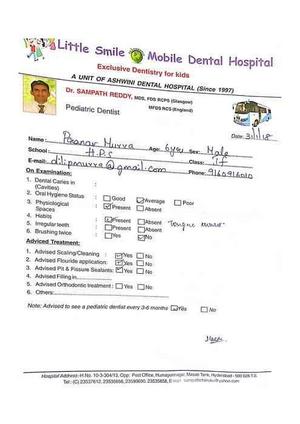 Little Smile Mobile Dental Hospital
Exclusive Dentistry for kids
A UNIT OF ASHWINI DENTAL HOSPITAL (Since 1997)
Dr. SAMPATH REDDY, MDS, FDS RCPS (Glasgow)
MFDS RCS (England)
Pediatric Dentist
Date: 31/1/18
Name: Murra Age: 6 yrs Sex: Male
School: H.P.S Class: If
E-mail: dilipmurra@gmail.com Phone: 9160916010
On Examination:
1. Dental Caries in :
(Cavities)
2. Oral Hygiene Status : Good Average Poor
3. Physiological : Present Absent
Spaces
4. Habits : Present Absent
5. Irregular teeth : Present Absent
6. Brushing twice : Yes No
Adviced Treatment:
1. Advised Scaling/Cleaning : Yes No
2. Advised Flouride application: Yes No
3. Advised Pit & Fissure Sealants: Yes No
4. Advised Filling in
5. Advised Orthodontic treatment : Yes No
6. Others:
Note: Advised to see a pediatric dentist every 3-6 months Yes No
Hospital Address: H.No. 10-3-304/13, Opp. Post Office, Humayunnagar, Masab Tank, Hyderabad - 500 028 T.S.
Tel: (C) 23537612, 23535656, 23590690, 23535658, E